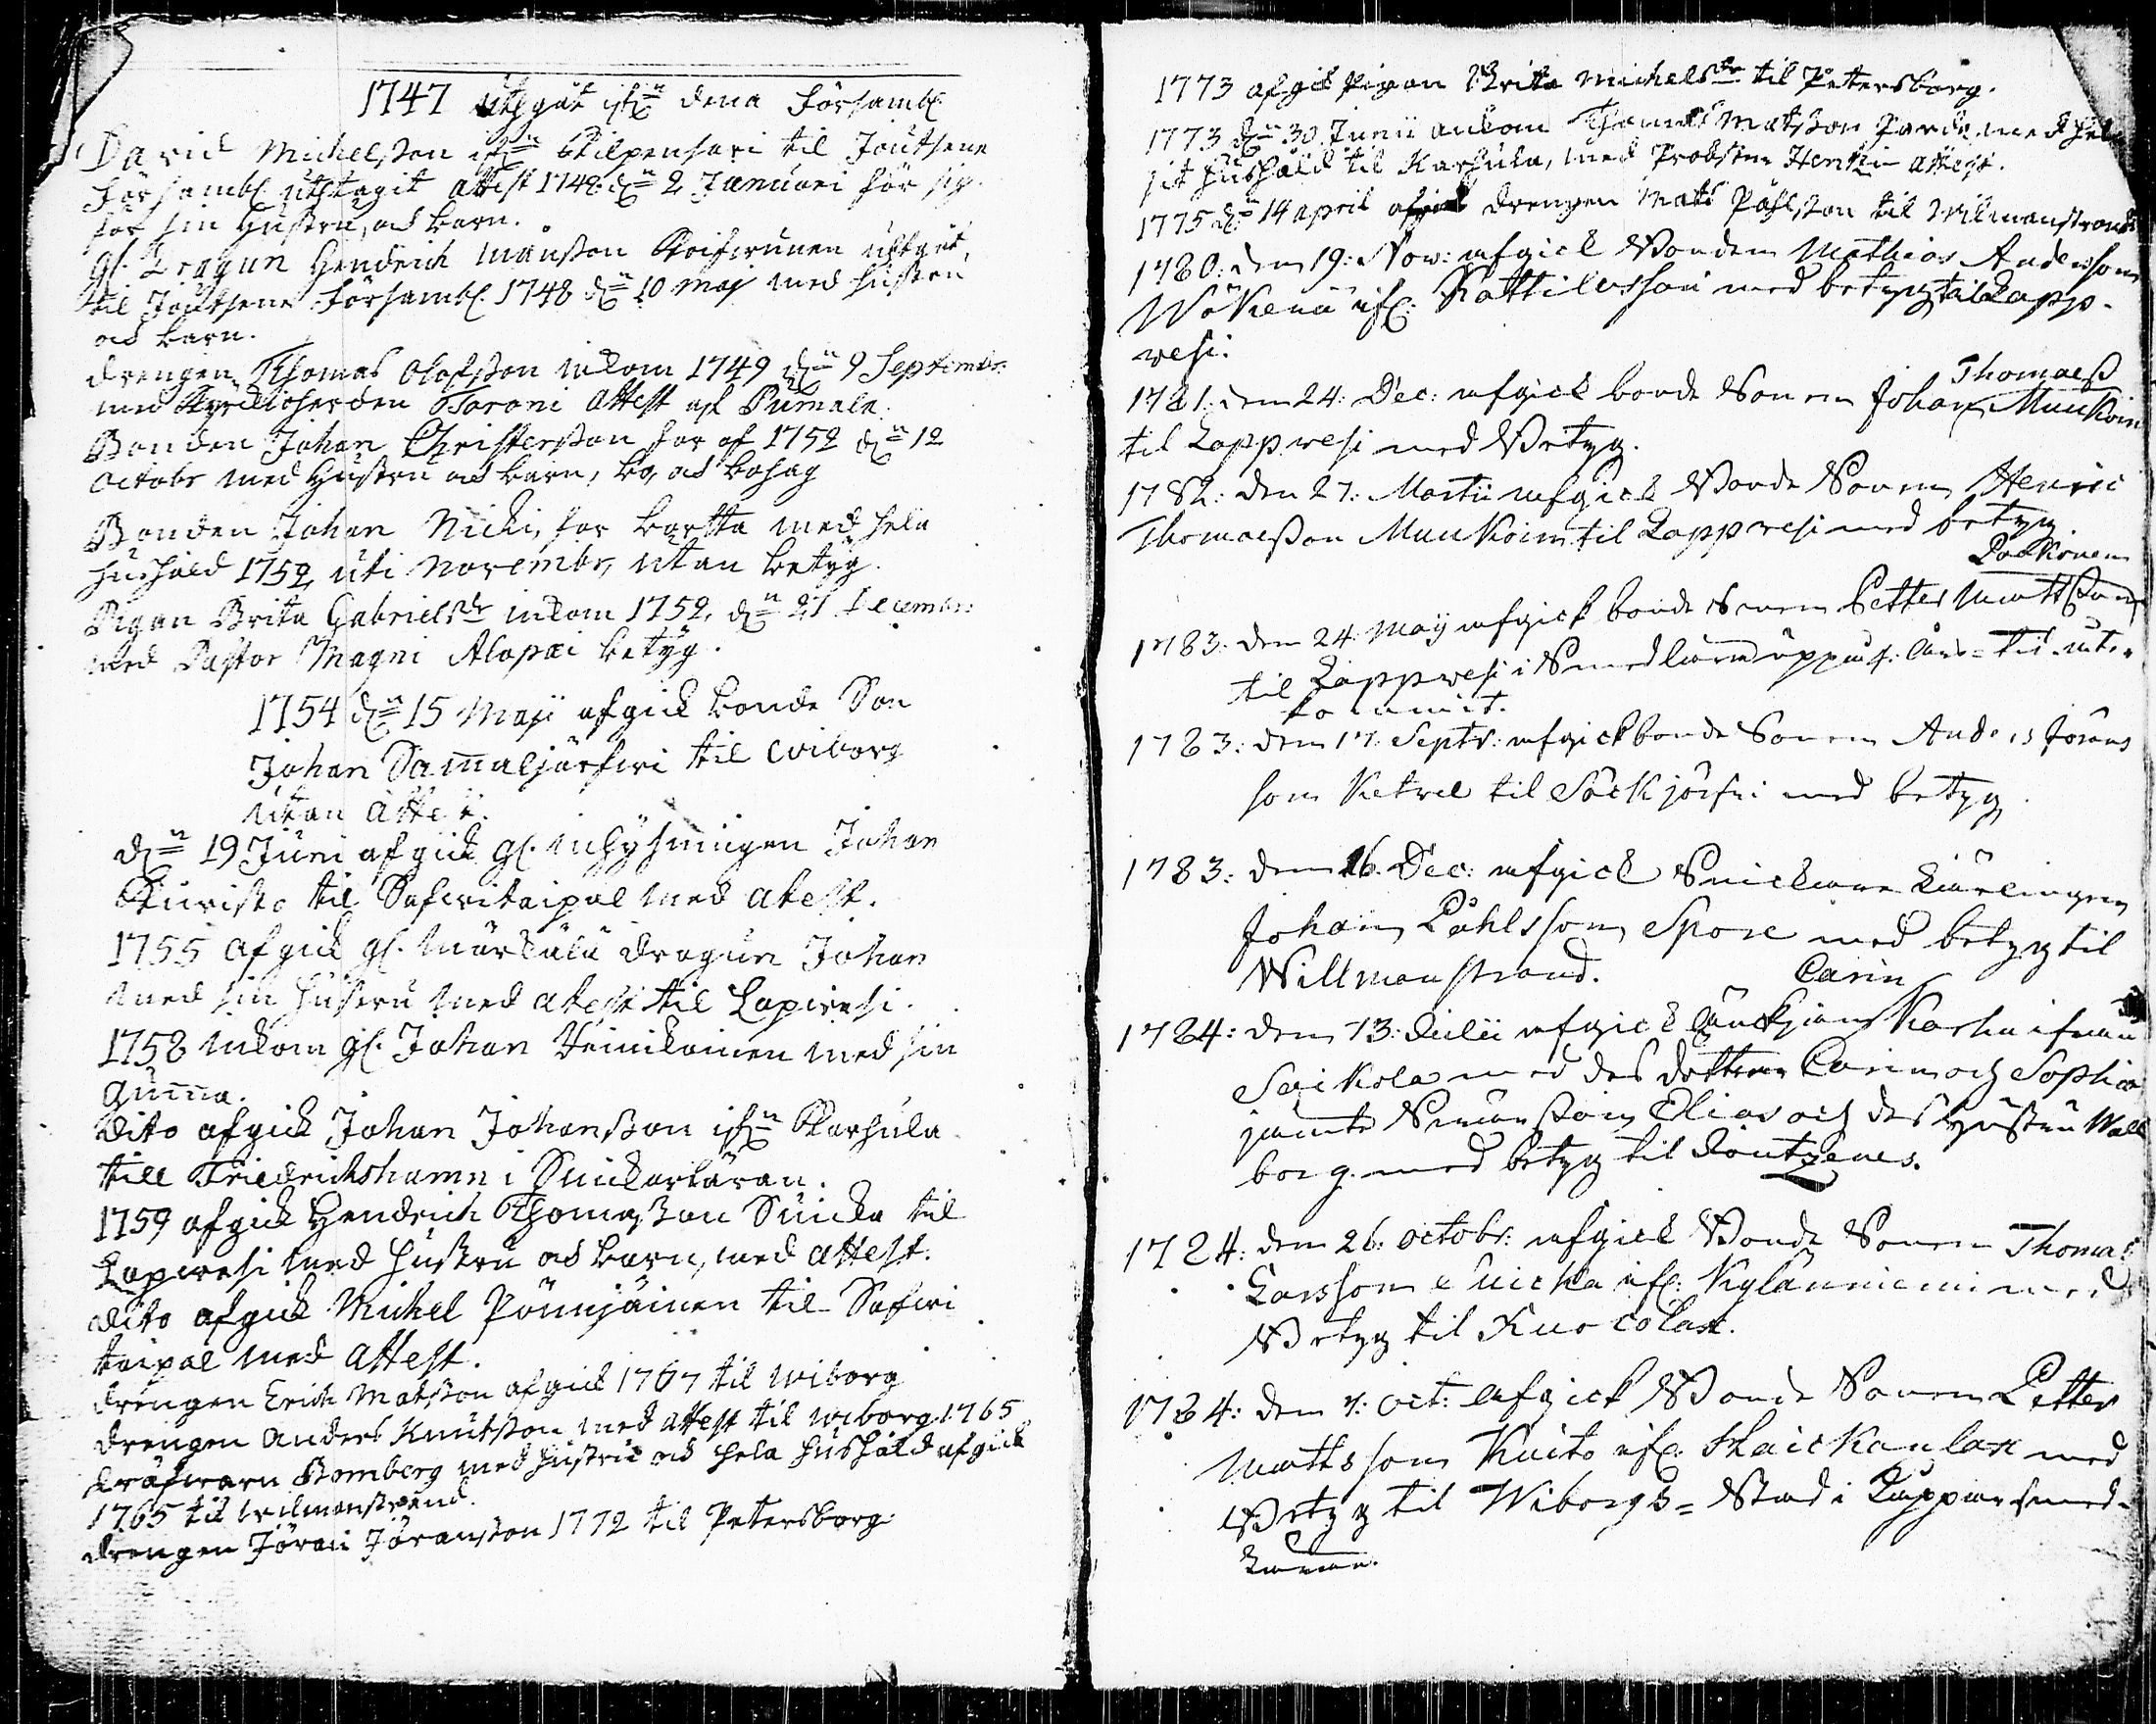 1747 utgåt ifrn dena Försambl
David Michelsson ifrn Kilpensari til Joutsene
Försambl uthtagit attest 1748 dn 2 Januari för sig
för sin Hustru, och barn.
gl. Dragun Hendrich Månsson Koifwunen utgåt,
til Joutsene Försambl. 1748 dn 10 Maj med hustru
och barn.
drengen Thomas Olofsson inkom 1749 dn 9 Septembr.
med Kyrckioherden Toroni attest af Pumala.
Bonden Johan Christersson for af 1752 dn 12
Octobr med Hustru och barn, bo, och bohag
Bonden Johan Nicki, for bortta med hela
hushåld 1752, uti Novembr, utan betyg.
Pigan Brita Gabrielsdr inkom 1752, dn 27 Decembr
med Pastor Magni Alopæi betyg.
1754 dn 15 Maji afgick bonde Son
Johan Sam̄aljärfwi til Wiborg
utan attest.
dn 19 Juni afgick gl. inhysningen Johan
Kuristo til Safwitaipal med atest.
1755 afgick gl. Märkälä dragun Johan
med sin hustru med atest til Lapwesi.
1758 inkom gl. Johan Heinikainen med sin
gum̄a.
Dito afgick Johan Johansson ifrn Karhula
till Friedrichshamn i Snickarläran.
1759 afgick Hendrich Thomasson Suicka til
Lapwesi med hustru och barn, med attest.
Dito afgick Michel Pönnjäinen til Safwi
taipal med attest.
drengen Erich Matsson afgick 1767 til Wiborg
drengen Anders Knutsson med attest til Wiborg 1765
Bomberg med hustru och hela hushåld afgick
1765 til Wilmanstrand.
drengen Jöran Jöransson 1772 til Petersborg.
1773 afgick Pigan Brita Michelsdr til Petersborg.
1773 dn 30 Junii ankom Thomas Matsson Parda med hela
sit hushåld til Karhula, med Probsten Henki attest.
1775 dn 14 April afgick drengen Mats Påhlsson til Wilmanstrand
1780: den 19: Nov: afgick Bonden Mathias Andersson
Wäkenä ifr: Rattilassari med betyg til Lapp-
wesi.
1781: den 24: Dec: afgick bonde Sonen Johan Thomaeß Muukoin
til Lappwesi med Betyg.
1782: den 27: Martii afgick Bonde Sonen Henric
Thomaeßon Muukoin til Lappwesi med betyg.
Pockonen
1783: den 24: Maij afgick bonde Sonen Petter Mattßon
til Lappwesi i Smedlära uppå 4: års tid ute-
kommit.
1783: den 17: Septr: afgick bonde Sonen Anders Jörans
son Ketvel til Säckjärfvi med betyg
1783: den 16: Dec: afgick Snickare Lärlingen
Johan Påhlsson Spore med betyg til
Willmanstrand.
Carin
1784: den 13: Julii afgick Änckjan Karhu ifrån
Saikola med des dottrar Carin och Sophia
jämte Sonen Elias och des Hustru Wall
borg med betyg til Joutzenes.
1784: den 26: Octobr: afgick Bonde Sonen Thomas
Larsson Suicka ifr: Kylänniemi med
Betyg til Kuocolax.
1784: den 7: Oct: afgick Bonde Sonen Petter
Mattsson Kuito ifr: Skaickanlax med
Betyg til Wiborgs= Stad i Kopparsmed-
läran.